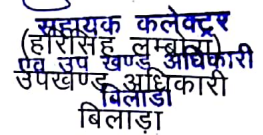 सहायक कलेक्टर
(हीरसिंह लम्बोरा)
एवं उप खण्ड अधिकारी
उपखण्ड अधिकारी
बिलाडा
बिलाड़ा